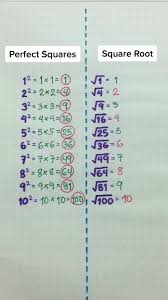 Perfect Squares
1² = 1 × 1 = 1
2² = 2 × 2 = 4
3² = 3 × 3 = 9
4² = 4 × 4 = 16
5² = 5 × 5 = 25
6² = 6 × 6 = 36
7² = 7 × 7 = 49
8² = 8 × 8 = 64
9² = 9 × 9 = 81
10² = 10 × 10 = 100
Square Root
√1 = 1
√4 = 2
√9 = 3
√16 = 4
√25 = 5
√36 = 6
√49 = 7
√64 = 8
√81 = 9
√100 = 10